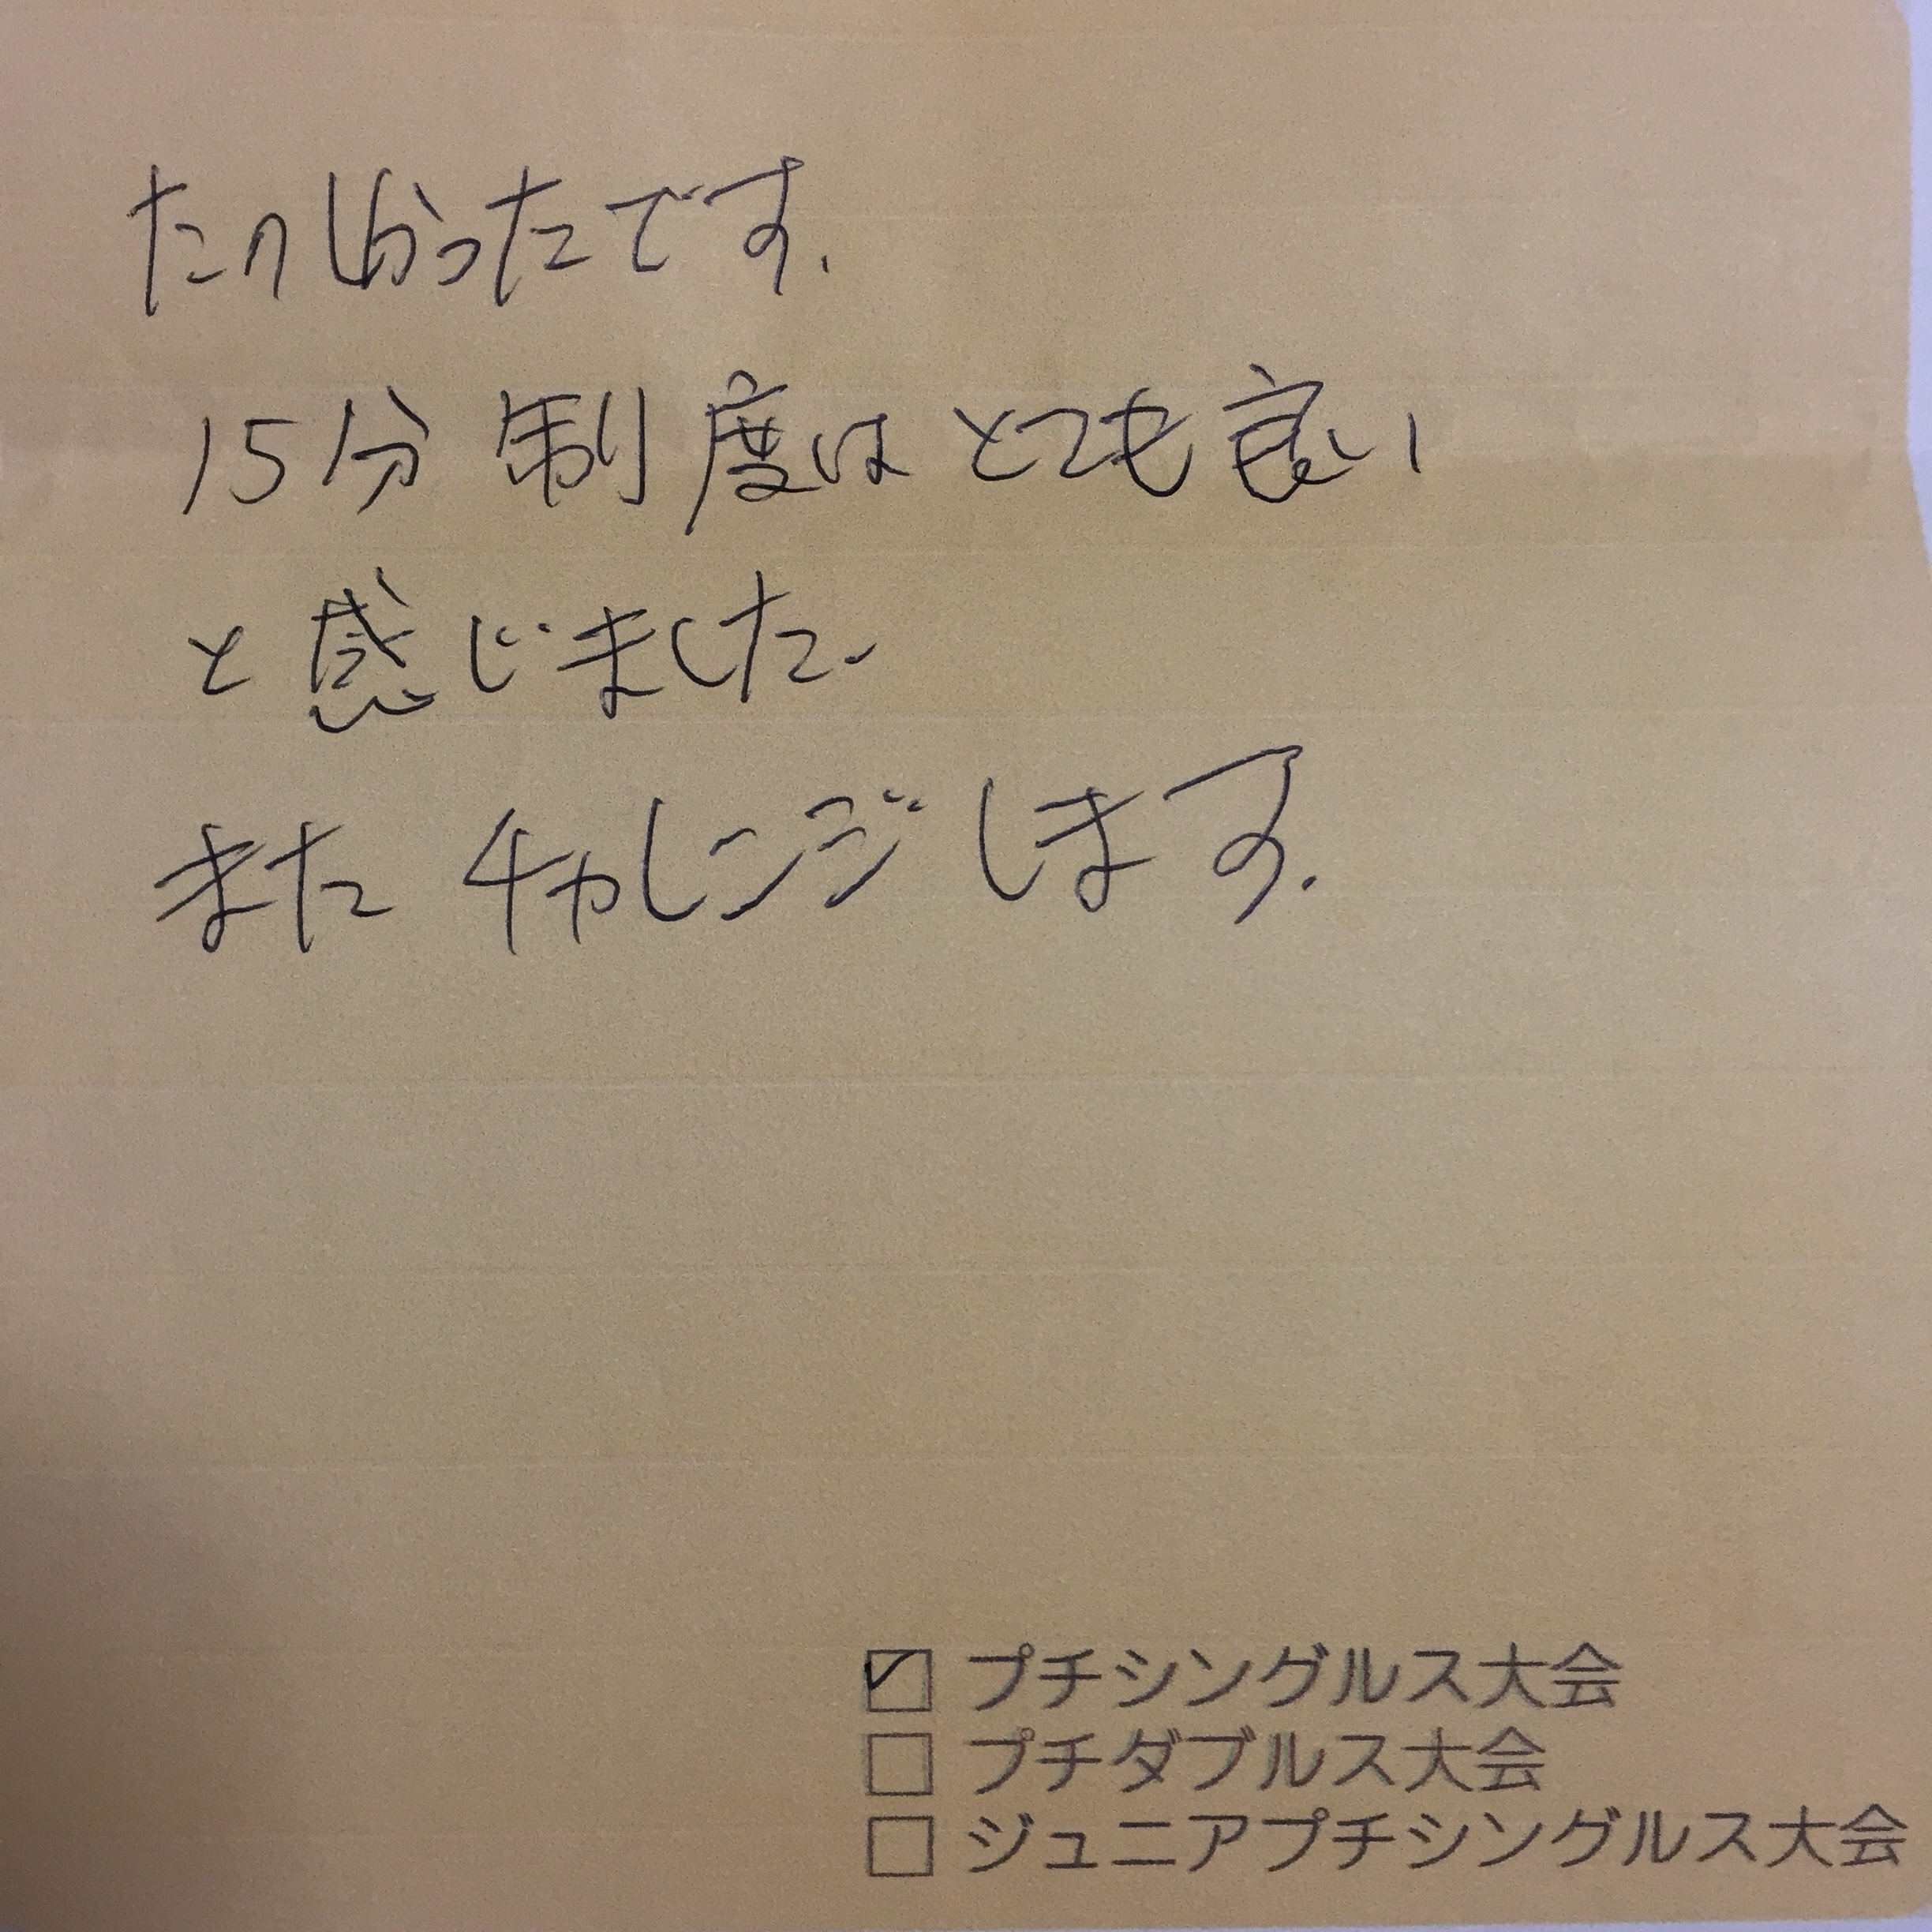 たのしかったです.
15分制度はとても良い
と感じました.
またチャレンジします.
☑ プチシングルス大会
☐ プチダブルス大会
☐ ジュニアプチシングルス大会